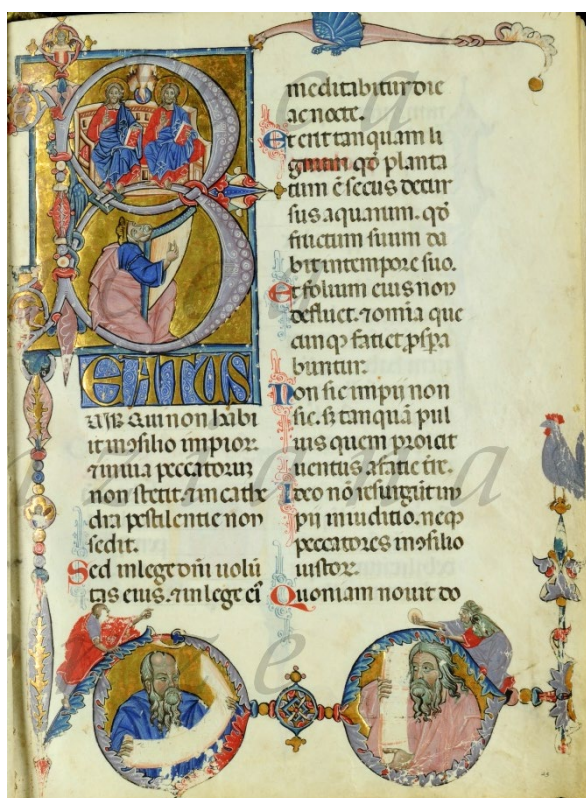 BEATUS
uir qui non habi
it ꝯsilio impioꝝ
⁊ in uia peccatorum
non stetit. ⁊ in cathe
dra pestilentie non
sedit.
Sed in lege dñi uolũ
tas eius. ⁊ in lege eı̃
meditabitur die
ac nocte.
Et erit tanquam li
gnum qđ planta
tum ẽ secus decur
sus aquarum. qđ
fructum suum da
bit in tempore suo.
Et folium eius non
defluet. ⁊ omĩa que
cunqꝫ faciet ꝓspa
buntur.
Non sic impii non
sic. ꝫ tanquã pul
uis quem proicit
uentus a facie tre.
Ideo nõ resurgũt im
pii in iuditio. neqꝫ
peccatores in ꝯsilio
iustoꝝ.
Quoniam nouit do